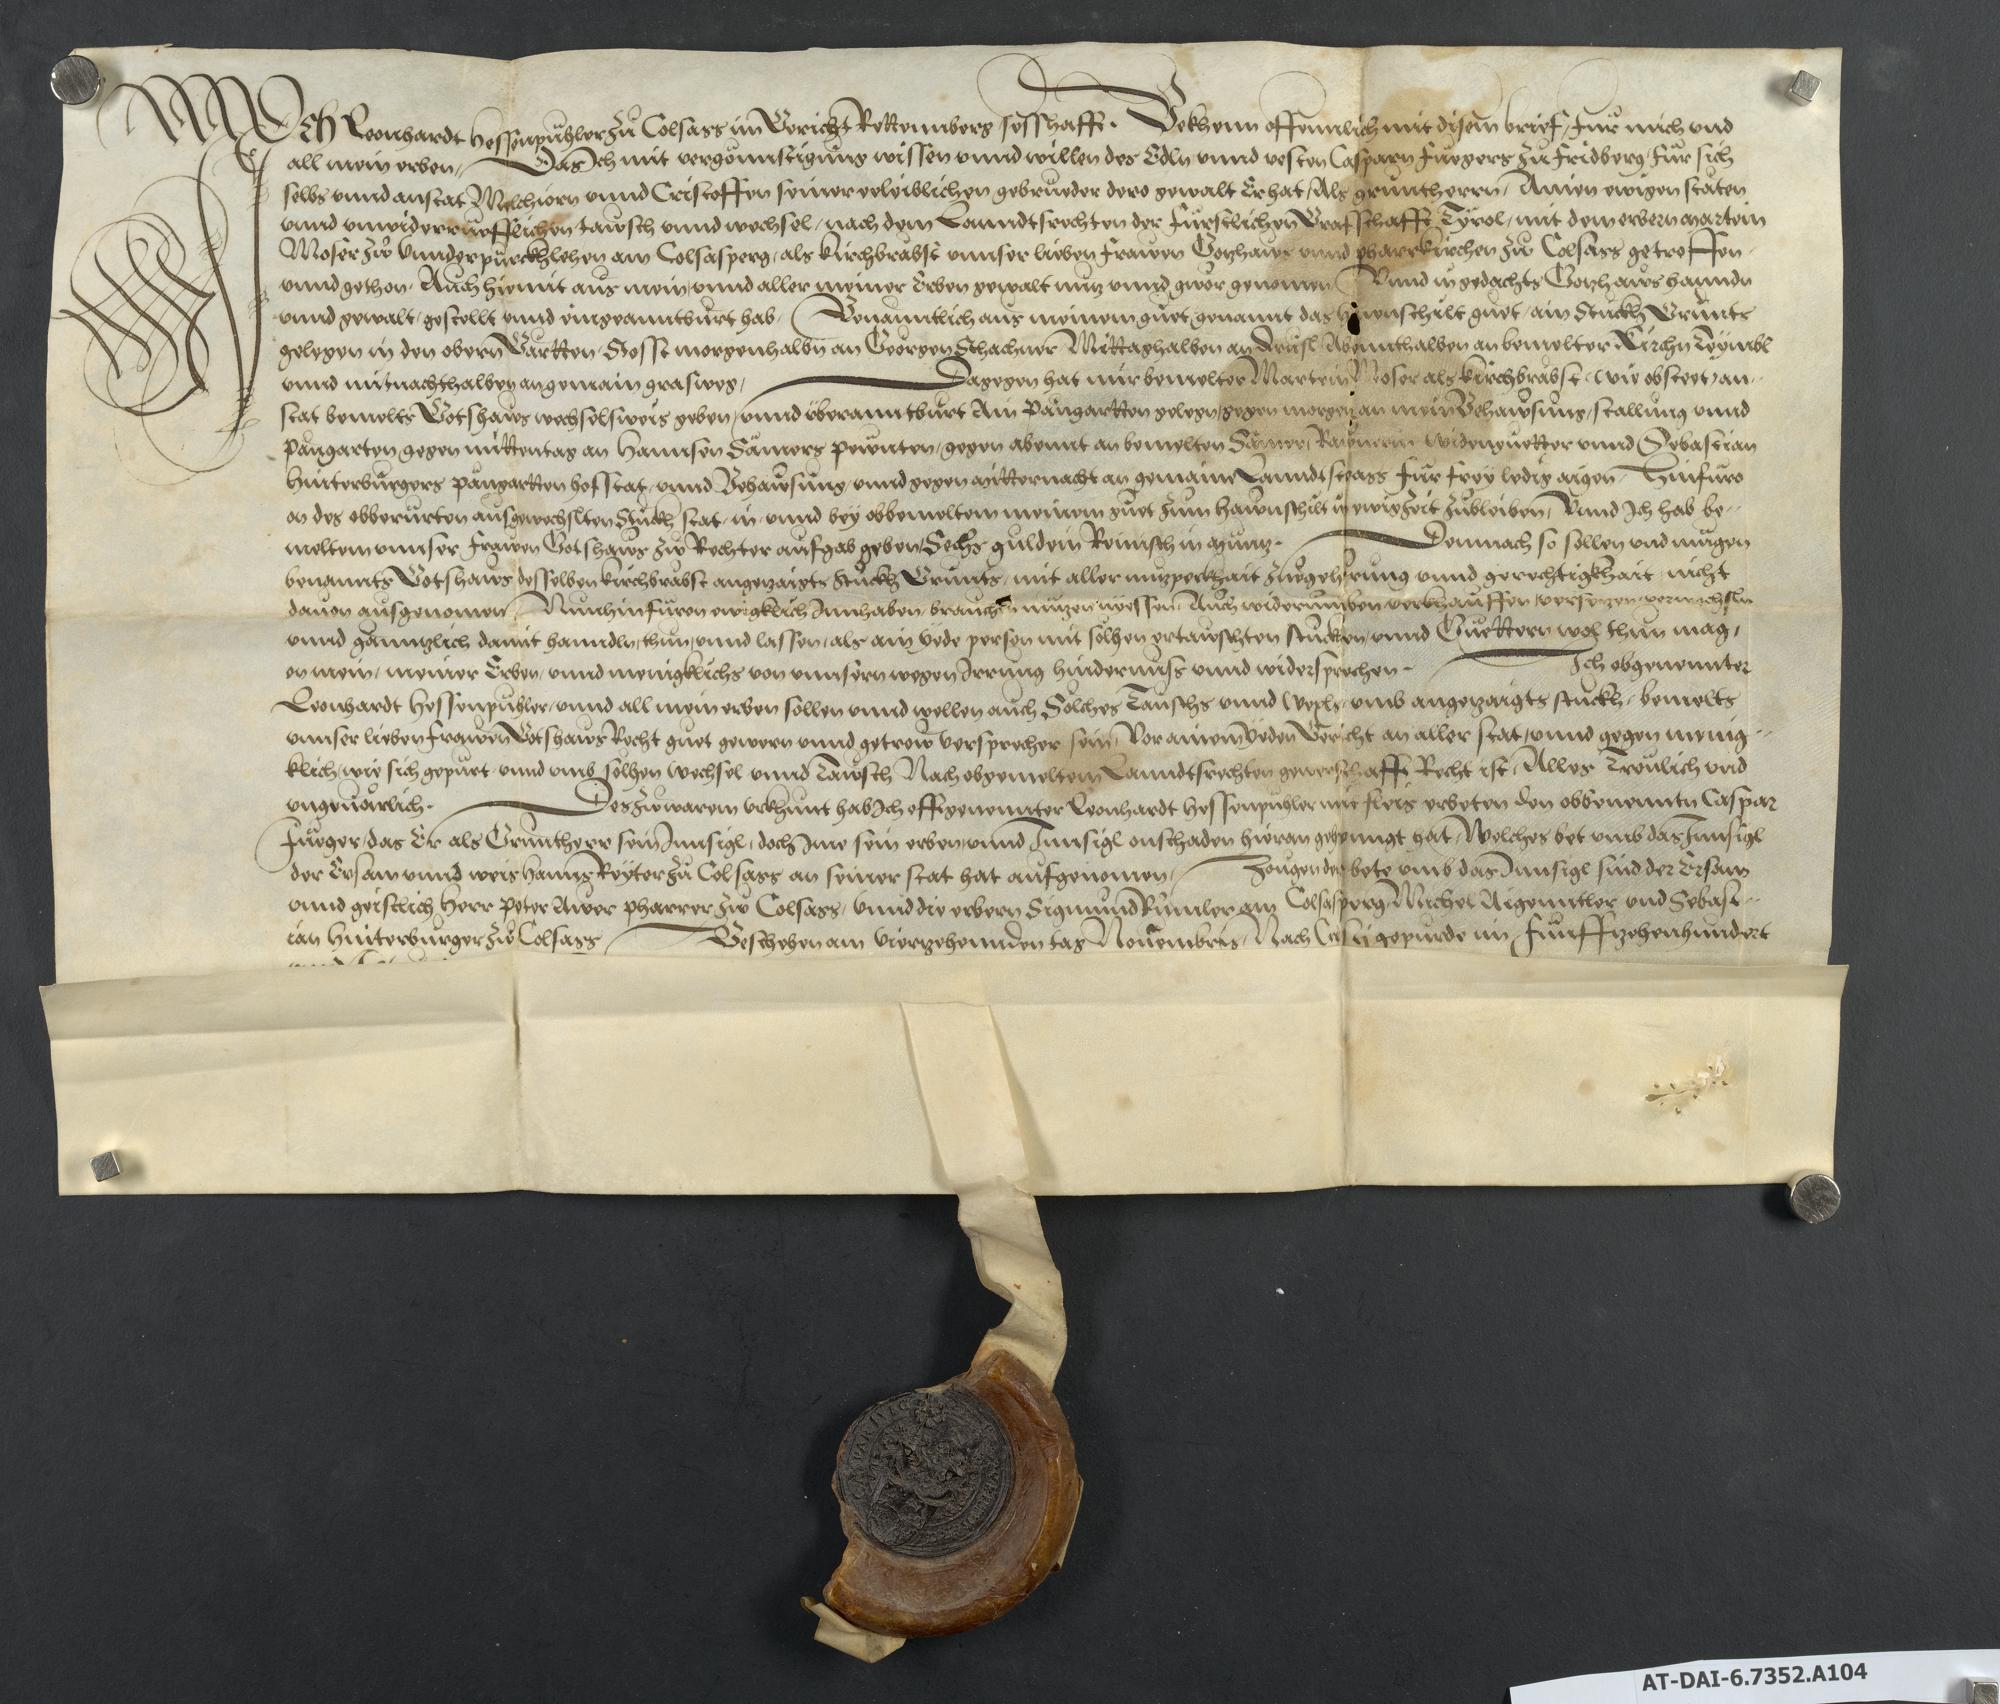 Ich Leonhardt Hessenpühler zu Colsass im Gericht Rettemberg sesshafft. Bekhenn offennlich mit disem brief, für mich und
all mein erben, Das Ich mit vergönnstigung wissen unnd willen des Edln unnd vesten Casparn Fuegers zu Fridberg, für sich
selbs unnd anstat Melchiorn unnd Cristoffen seiner eeleiblichen gebrueder dero gewalt Er hat, Als gruntherrn, Ainen ewigen stäten
unnd unwiderrüefflichen tawsch unnd wechsel, nach dem Lanndtsrechten der Fürstlichen Grafschafft Tyrol, mit dem erbern Martein
Moser zw Unnderpürckhlehen am Colsasperg, als kirchbrabst unnser lieben Frawen Gotzhaws unnd pharrkirchen zw Colsass getroffen
unnd gethon. Auch hiemit aus mein, unnd aller meiner Erben gewalt nutz unnd gwör genomen, Unnd in gedachts Gotzhaws hanndn
unnd gewalt, gestellt unnd eingeanntburt hab. Benanntlich aus meinem guet, genannt das guet, ain Stuckh Grunts
gelegen in den obern Gärtten. Stosst morgenhalbn an Georgen Schachner Mittaghalben an Abennthalben an bemelter Kirchn
unnd mitnachthalben an gemain grasweg, Dagegen hat mir bemelter Martein Moser als kirchbrabst, wie obsteet, an-
stat bemelts Gotshaws wechselsweis geben, unnd überanntburt Ain Pangartten gelegen, gegen morgen an mein Behawsung, stallung unnd
Pangarten gegen mittentag an Hannsen Sämers pewnten, gegen abennt an bemelten Sämer, widenguetter unnd Sebastian
Hinterburgers pangartten hofstat, unnd Behawsung, unnd gegen mitternacht an gemaine Lanndtstrass für frey ledig aigen, Hinfüro
an des obberürten ausgewechslten Stuckh stat, in, unnd bey obbemeltem meinem guet zum Hawnschilt in ewig zeit zubleiben, Unnd Ich hab be-
meltem unnser Frawen Gotshaws zw Rechter aufgab geben, Sechs guldein Reinisch in muntz. Demnach so sollen und mügen
benannts Gotshaws desselben kirchbrabst angezaigts stuckh Grunts, mit aller nutzperkhait zuegehörung unnd gerechtigkhait nicht
davon ausgenomen, Nun hinfüron ewigklich Innhaben, brauchen nutzen Auch widerumben verkhauffen, versetzen, verwechsln
unnd gänntzlich damit hanndln, thun, unnd lassen, als ain yede person mit solhen ertawschten stucken, unnd Guettern wol thun mag,
on mein, meiner Erben, unnd menigklichs von unnsern wegen Irrung hindernuss unnd widersprechen. Ich obgenennter
Leonhardt Hessenpühler, unnd all mein erben sollen unnd wellen auch Solches Tauschs unnd Wexls, umb angezaigts stuckh, bemelts
unnser lieben Frawen Gotshaws Recht guet gewern unnd getrew versprecher sein, Vor ainem yeden Gericht an aller stat, unnd gegen menig-
klich, wie sich gepürt, unnd umb solhen Wechsel unnd Tawsch Nach obgemeltem Lanndtsrechten gewerschafft Recht ist, Alles Treulich und
ungeuärlich. Des zw warem urkhunt hab Ich offtgenennter Leonhardt Hessenpühler mit fleis erbeten den obbenenntn Caspar
Fueger, das Er als Gruntherr sein Innsigl, doch Ime sein erben, unnd Innsigl onschaden hieran gehenngt hat, Welches bet umb das Innsigl
der Ersam unnd weis Hanns Reyter zu Colsass an seiner stat hat aufgenomen, Zeugen der bete umb das Innsigl sind der Ersam
unnd geistlich Herr Peter Awer pharrer zw Colsass, unnd die erbern Sigmund Rumler am Colsasperg, Michel Aigenntler und Sebast-
ian Hinterburger zw Colsass Geschehen am Vierzehennden tag Nouembris, Nach Cristi gepurde im Funffzehenhundert
CASPAR
AT-DAI-6.7352.A104